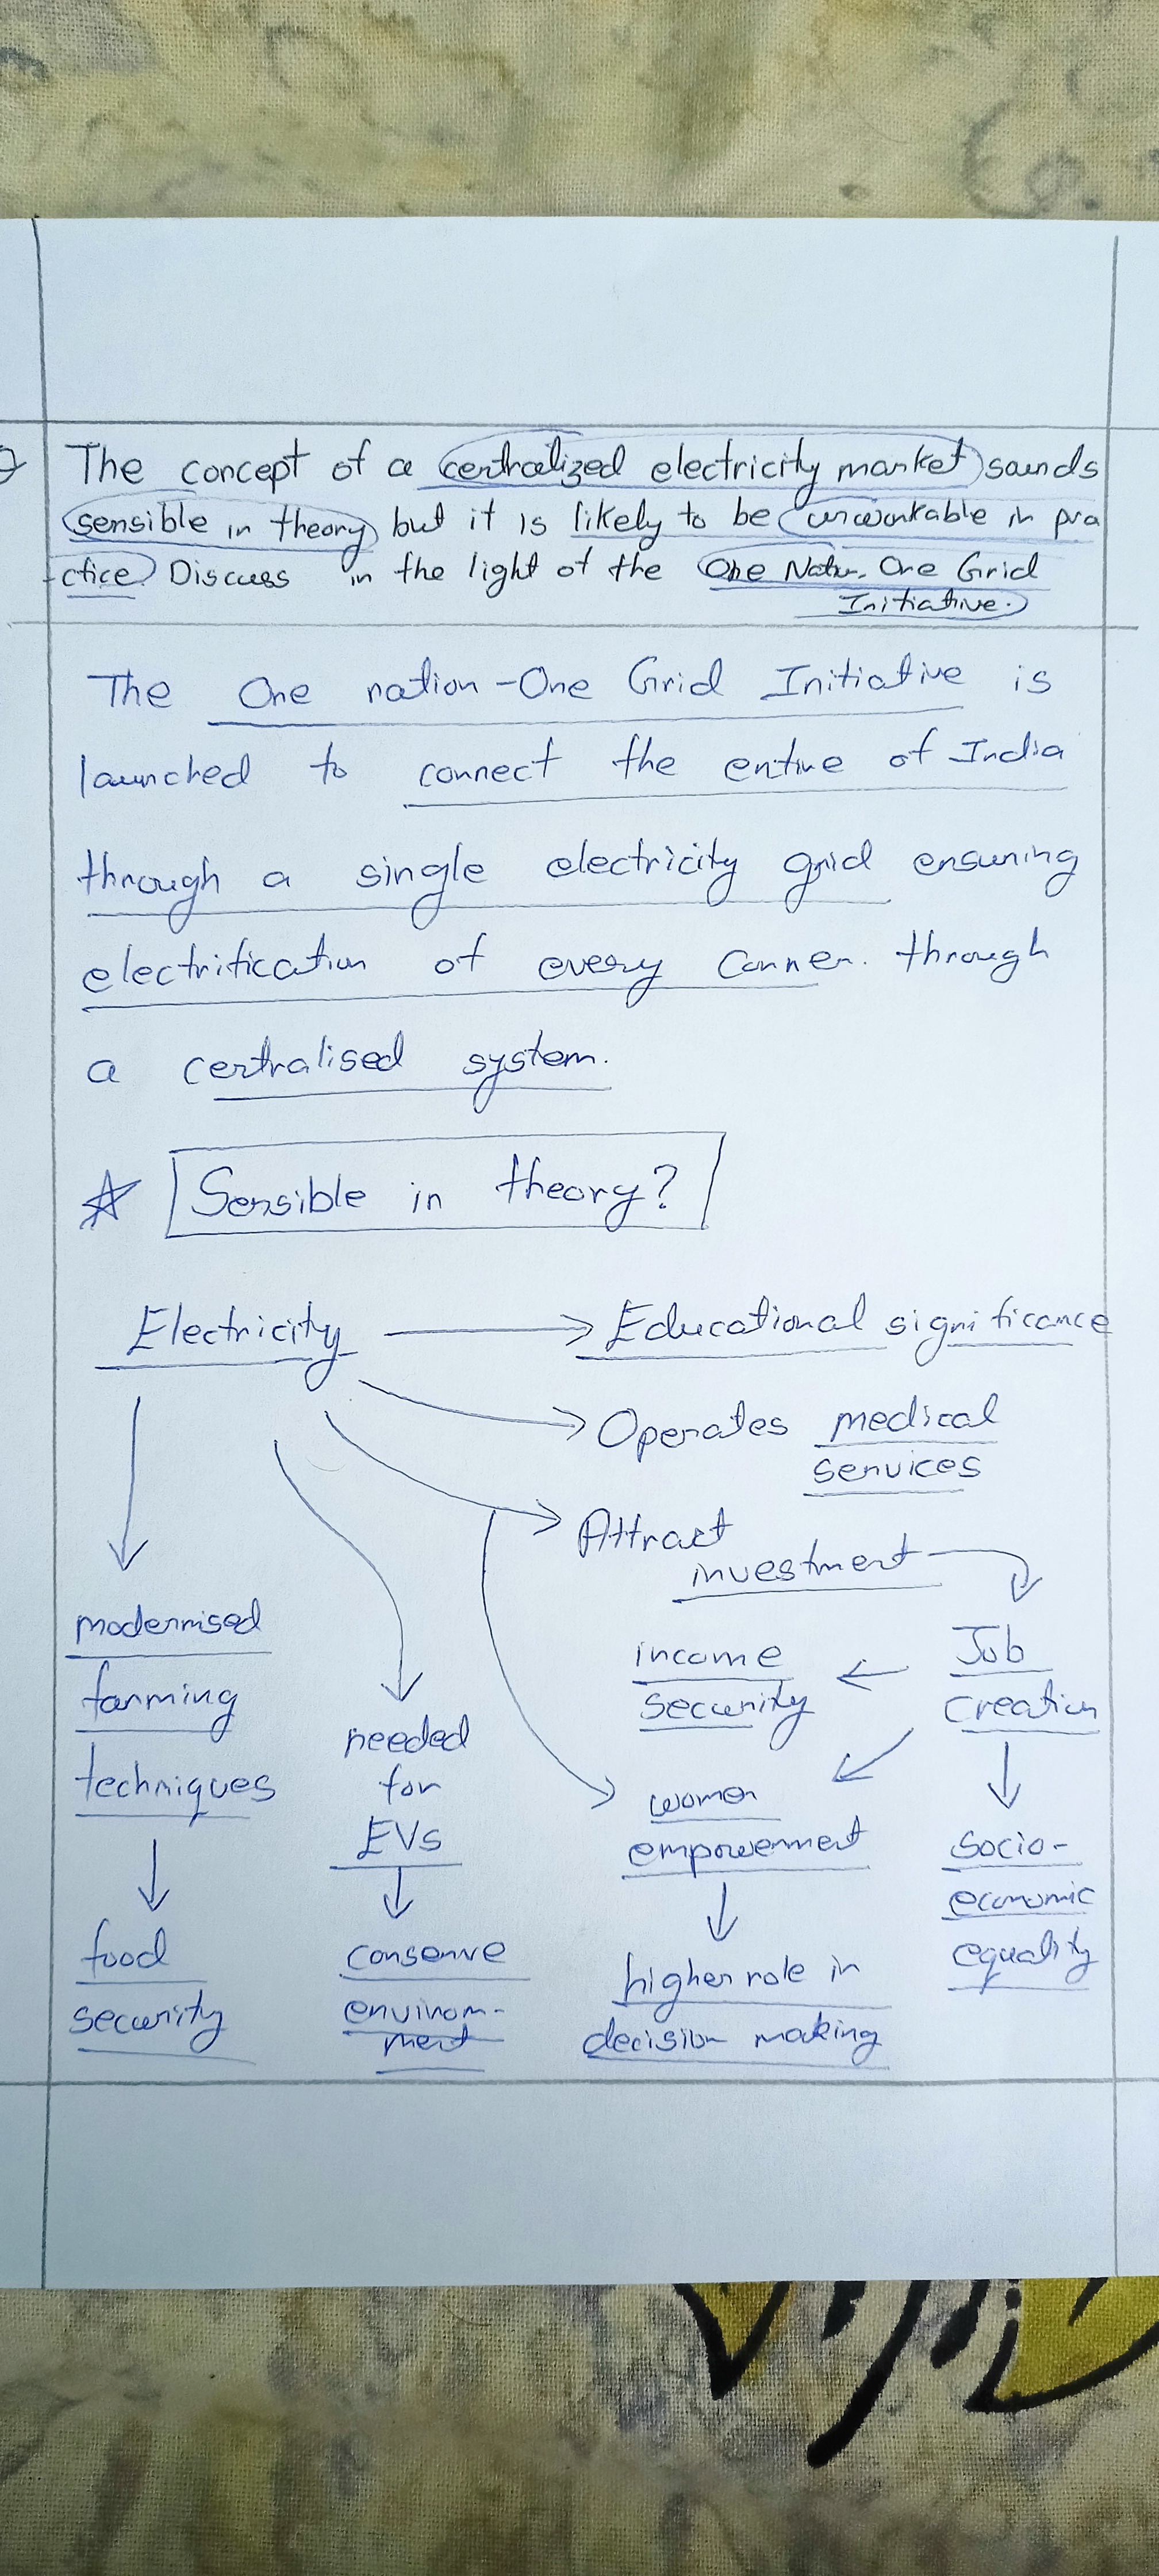 The concept of a centralized electricity market sounds
sensible in theory but it is likely to be unworkable in pra
-ctice. Discuss in the light of the One Natn. One Grid
Initiative.
The One nation-One Grid Initiative is
launched to connect the entire of India
through a single electricity grid ensuring
electrification of every corner. through
a centralised system.
Sensible in theory?
Electricity → Educational significance
→ Operates medical
services
→ Attract
investment
modernised
farming
techniques
food
security
needed
for
EVs
conserve
environ-
ment
Job
creation
income
security
women
empowerment
higher role in
decision making
socio-
economic
equality